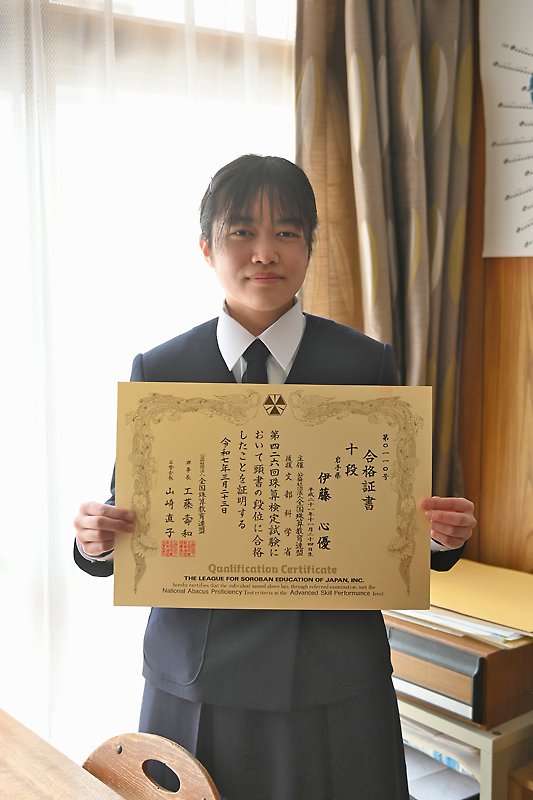 第〇一一〇号
合格証書
十段
岩手県
伊藤 心優
平成二十一年十一月二十四日生
主催 公益社団法人全国珠算教育連盟
後援 文部科学省
第四二六回珠算検定試験に
おいて頭書の段位に合格
したことを証明する
令和七年三月二十三日
公益社団法人全国珠算教育連盟
理事長 工藤壽和
山崎直子
Qualification Certificate
THE LEAGUE FOR SOROBAN EDUCATION OF JAPAN, INC.
hereby certifies that the individual named above has, through referred examination, met the
National Abacus Proficiency Test criteria at the Advanced Skill Performance level.